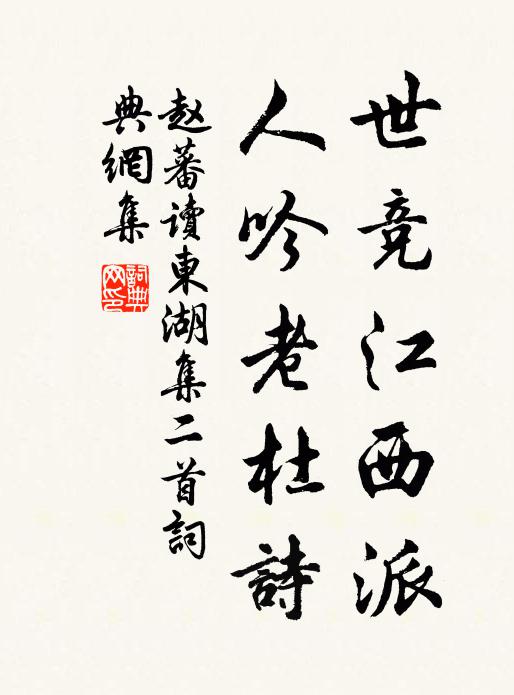 世竞江西派
人吟老杜詩
赵蕃读東湖集二首詞
典網集
詞典网印